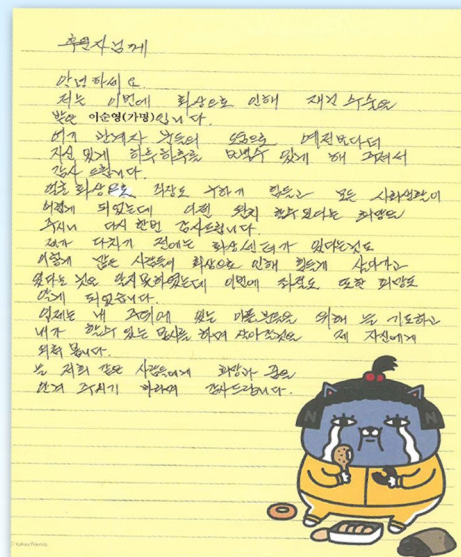 후원자님께
안녕하세요
저는 이번에 화상으로 인해 재건 수술을
받은 이순영(가명)입니다.
여기 관계자 분들의 도움으로 예전보다 더
자신 있게 하루하루를 보낼수 있게 해 주셔서
감사 드립니다.
얼굴 화상으로 직장도 구하기 힘들고 모든 사회생활이
어렵게 되었는데 이젠 뭔지 할수있다는 희망을
주시니 다시 한번 감사드립니다.
제가 다치기 전에는 화상센터가 있다는것도
이렇게 많은 사람들이 화상으로 인해 힘들게 살아가고
있다는 것을 알지못하였는데 이번에 좌절도 또한 희망도
알게 되었습니다.
이제는 내 주위에 있는 아픈분들을 위해 늘 기도하고
내가 할수 있는 봉사를 하며 살아갈것을 제 자신에게
늘 저희 같은 사람들에게 희망과 꿈을
안겨 주시기 바라며 감사드립니다.
kakao friends